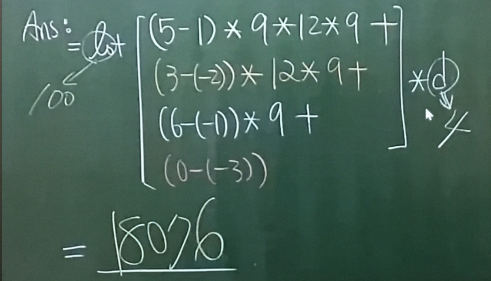 Ans:
= lo + [(5-1)*9*12*9+
(3-(-2))*12*9+
(6-(-1))*9+
(0-(-3))] *d
100
4
= 18076